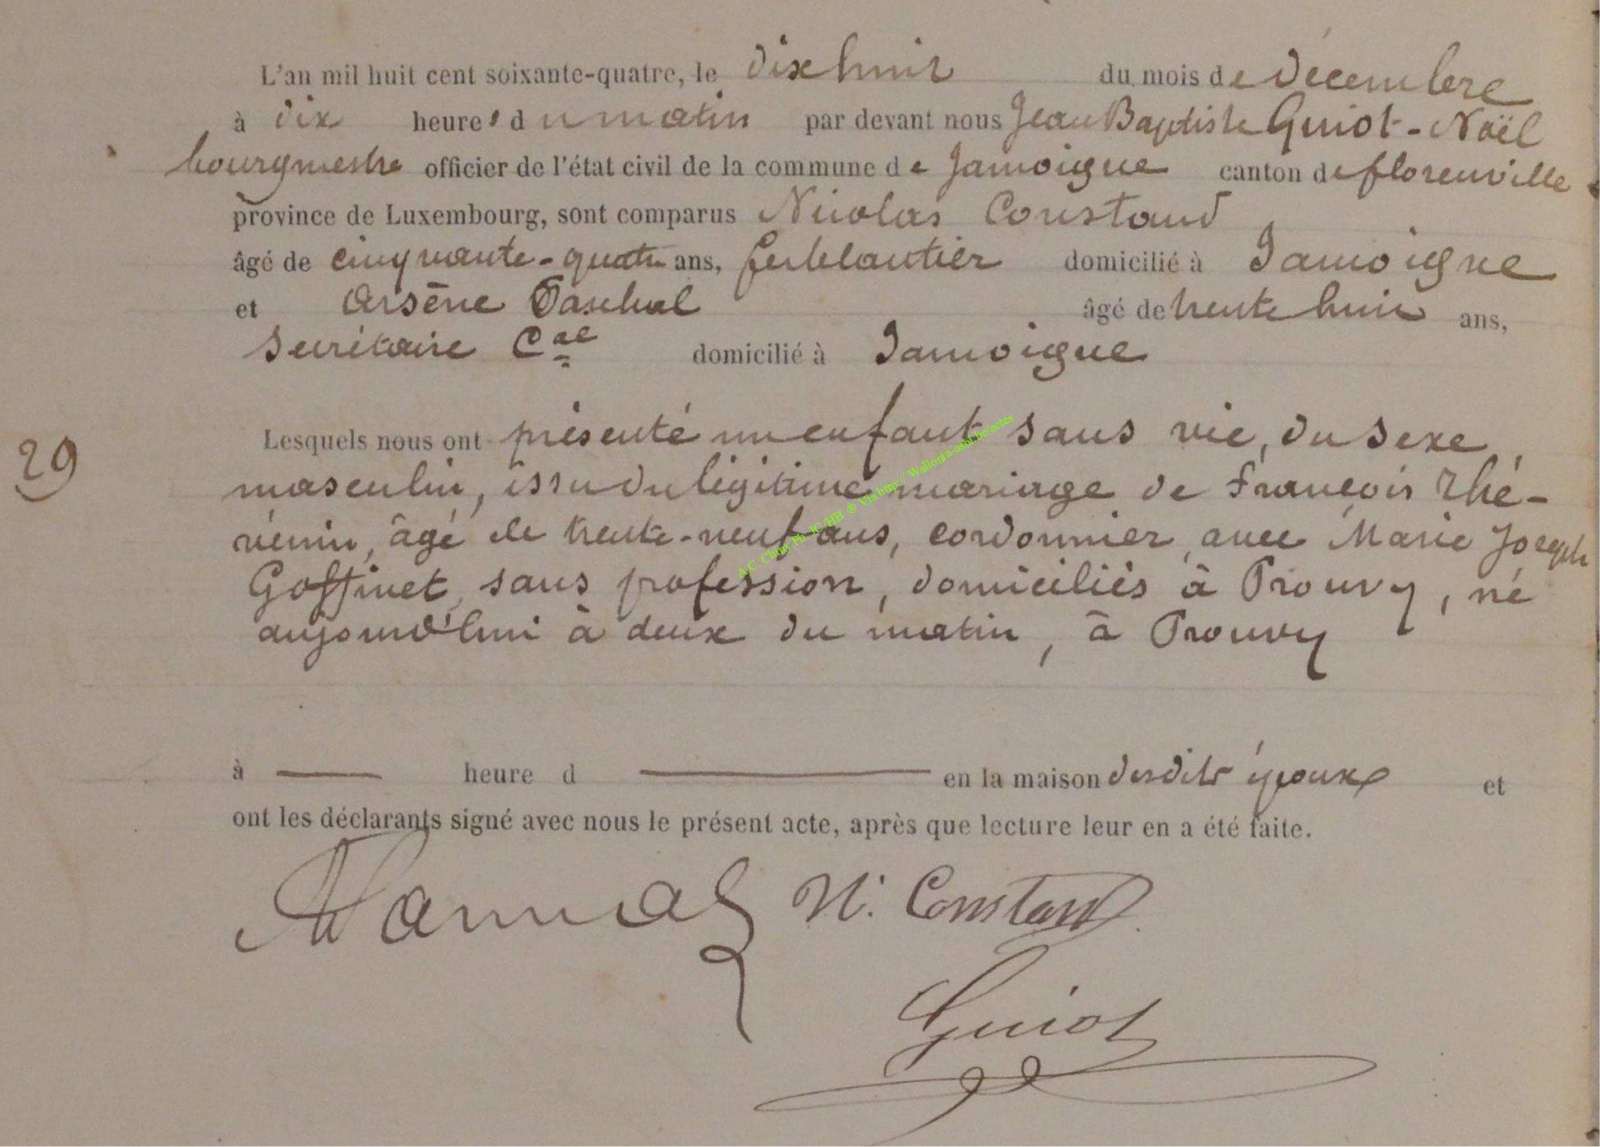 L'an mil huit cent soixante-quatre, le dix huit du mois de Décembre
à dix heures du matin par devant nous Jean Baptiste Guiot-Noël
bourgmestre officier de l'état civil de la commune de Jamoigne canton de florenville
province de Luxembourg, sont comparus Nicolas Constand
âgé de cinquante-quatre ans, ferblantier domicilié à Jamoigne
et Arsène Paschal âgé de trente huit ans,
Secrétaire Cal domicilié à Jamoigne
29
Lesquels nous ont présenté un enfant sans vie, du sexe
masculin, issu du légitime mariage de François Thé-
vénin, âgé de trente-neuf ans, cordonnier, avec Marie Joseph
Goffinet, sans profession, domiciliés à Prouvy, né
aujourd'hui à deux du matin, à Prouvy
à heure d en la maison desdits époux et
ont les déclarants signé avec nous le présent acte, après que lecture leur en a été faite.
N. Constand
Guiot